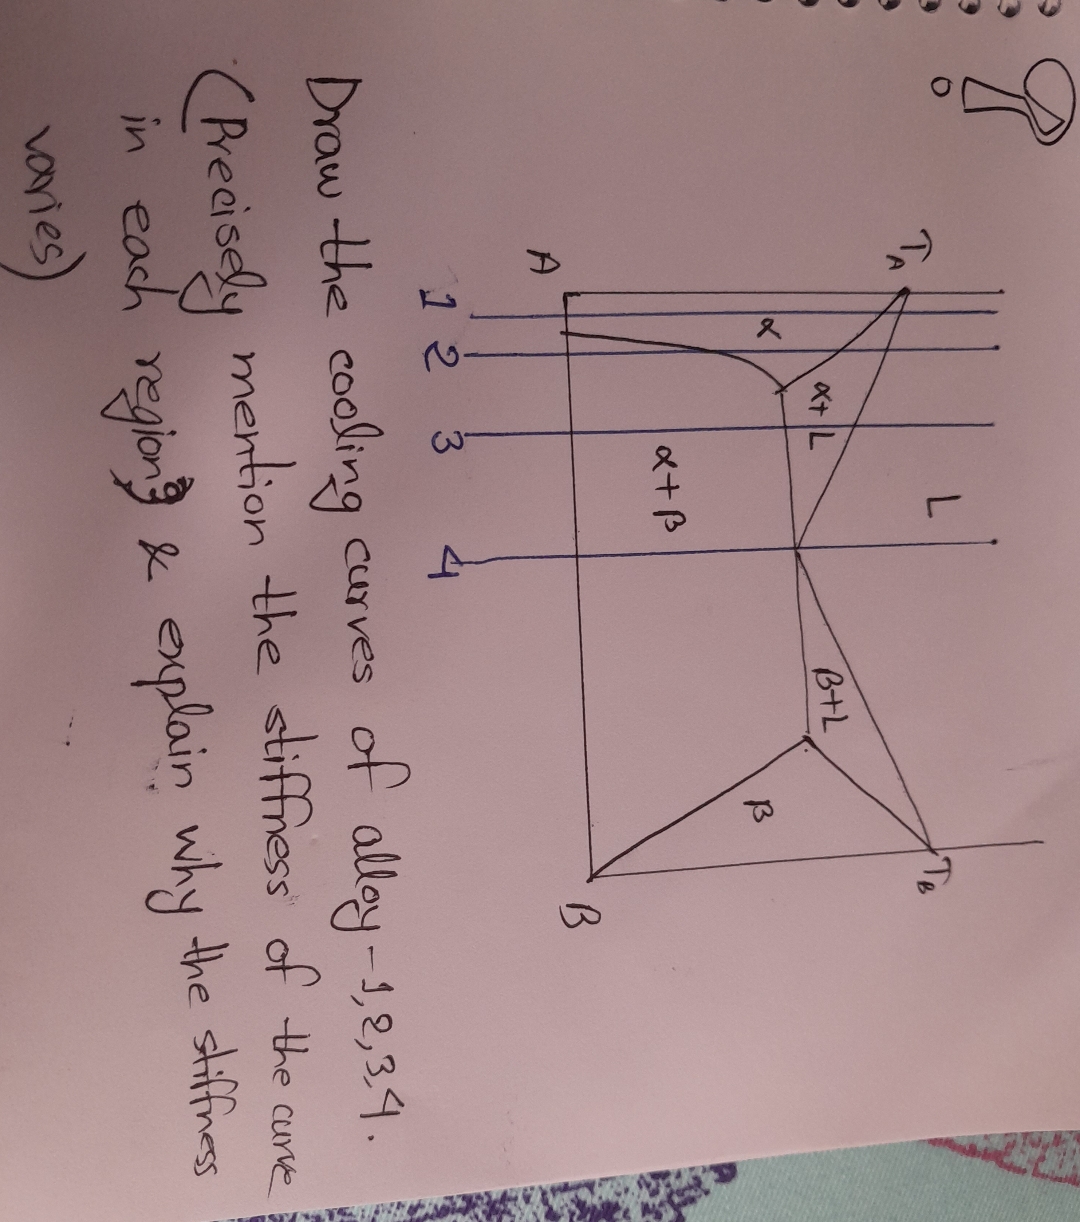 T_A
T_B
L
α+L
β+L
α
β
α+β
A
B
1
2
3
4
Draw the cooling curves of alloy-1,2,3,4.
(Precisely mention the stiffness of the curve
in each region & explain why the stiffness
varies)